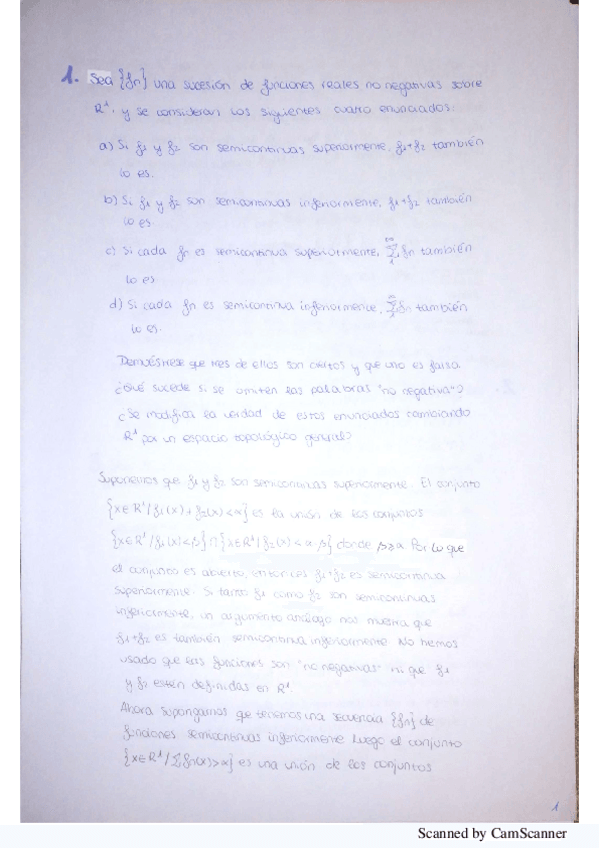 1. Sea {fn} una sucesión de funciones reales no negativas sobre
R¹, y se consideran los siguientes cuatro enunciados:
a) Si f1 y f2 son semicontinuas superiormente, f1+f2 también
lo es.
b) Si f1 y f2 son semicontinuas inferiormente, f1+f2 también
lo es
c) Si cada fn es semicontinua superiormente, ∞∑1 fn también
lo es.
d) Si cada fn es semicontinua inferiormente, ∞∑1 fn también
lo es.
Demuéstrese que tres de ellos son ciertos y que uno es falso.
¿Qué sucede si se omiten las palabras "no negativa"?
¿Se modifica la verdad de estos enunciados cambiando
R¹ por un espacio topológico general?
Suponemos que f1 y f2 son semicontinuas superiormente. El conjunto
{x∈R¹/f1(x)+f2(x)<α} es la unión de los conjuntos
{x∈R¹/f1(x)<β}∩{x∈R¹/f2(x)<α-β} donde Por lo que
el conjunto es abierto, entonces f1+f2 es semicontinua
superiormente. Si tanto f1 como f2 son semicontinuas
inferiormente, un argumento análogo nos muestra que
f1+f2 es también semicontinua inferiormente. No hemos
usado que las funciones son "no negativas" ni que f1
y f2 estén definidas en R¹.
Ahora supongamos que tenemos una secuencia {fn} de
funciones semicontinuas inferiormente luego el conjunto
{x∈R¹/∑fn(x)>α} es una unión de los conjuntos
1
Scanned by CamScanner